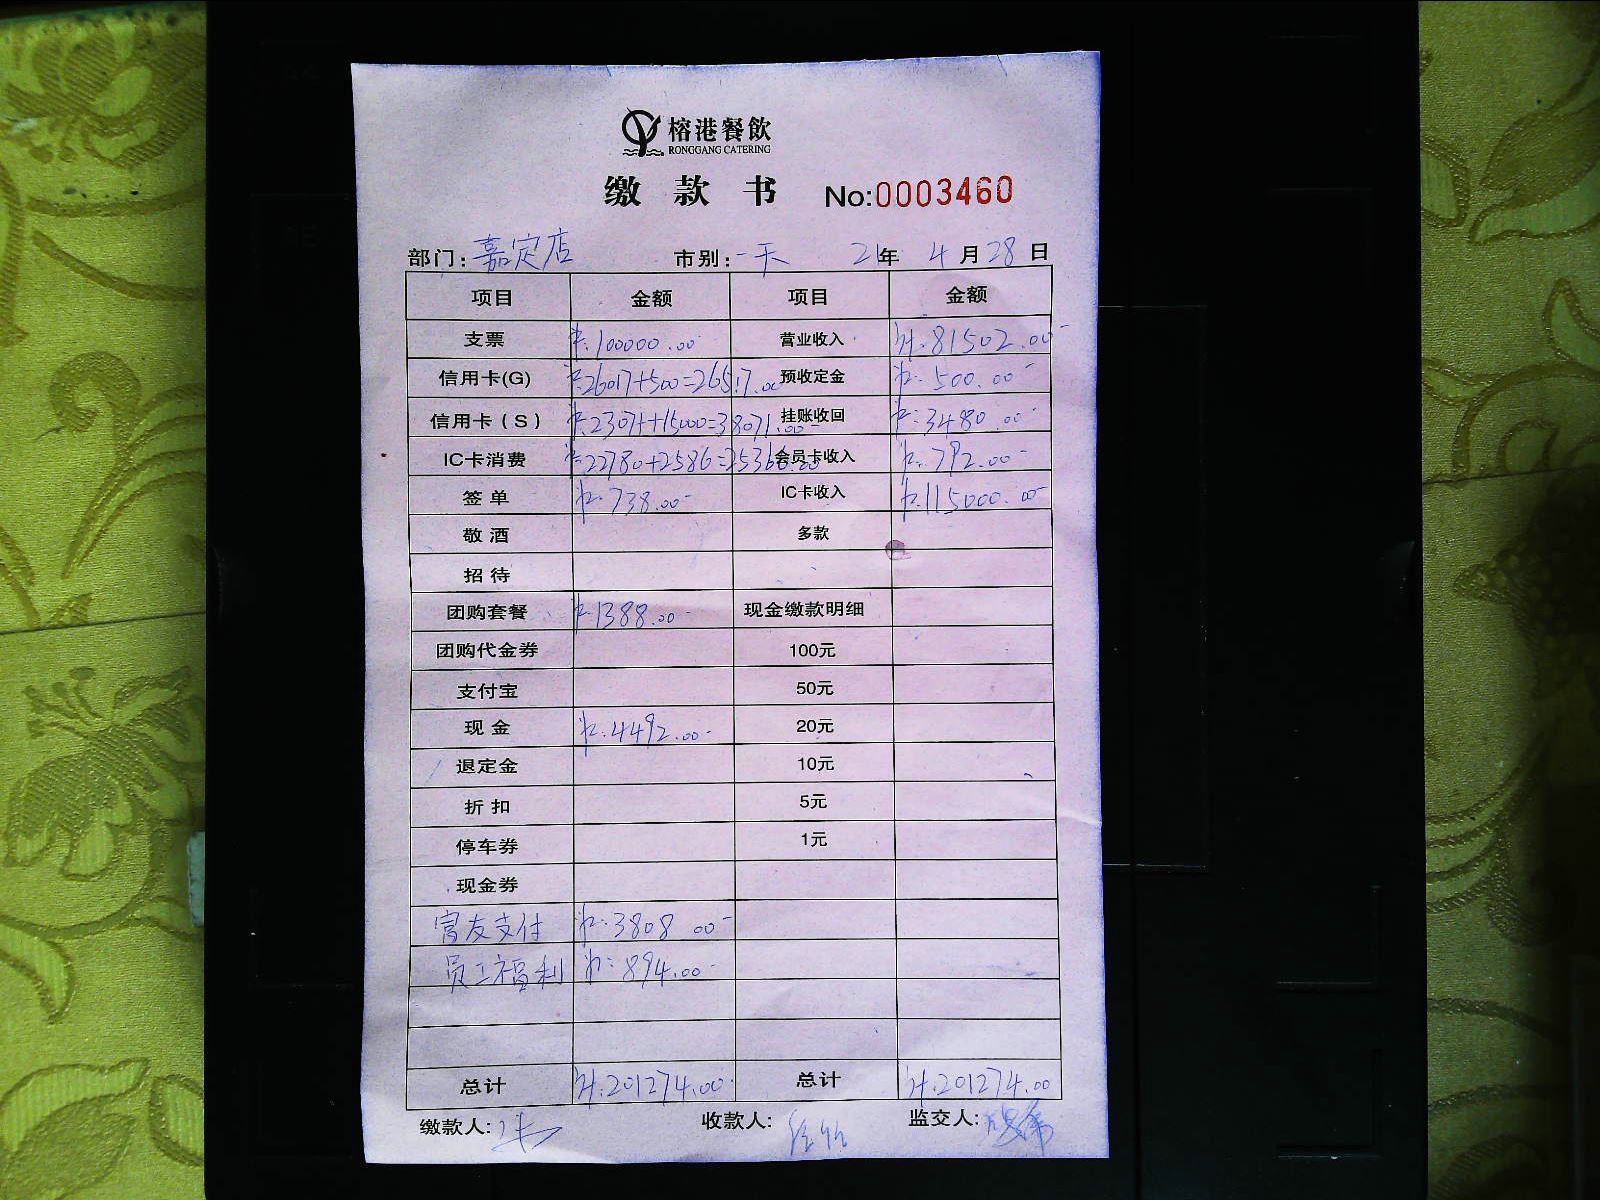 榕港餐飲
RONGGANG CATERING
缴款书 No:0003460
部门: 嘉定店 市别: 一天 21年 4月28日
项目 金额 项目 金额
支票 ¥:100000.00 营业收入 ¥:81502.00
信用卡(G) ¥:26017+500=26517.00 预收定金 ¥:500.00
信用卡(S) ¥:23071+15000=38071.00 挂账收回 ¥:3480.00
IC卡消费 ¥:22780+2586=25366.00 会员卡收入 ¥:792.00
签单 ¥:738.00 IC卡收入 ¥:115000.00
敬酒 多款
招待
团购套餐 ¥1388.00 现金缴款明细
团购代金券 100元
支付宝 50元
现金 ¥:4492.00 20元
退定金 10元
折扣 5元
停车券 1元
现金券
富友支付 ¥:3808.00
员工福利 ¥:894.00
总计 ¥:201274.00 总计 ¥:201274.00
缴款人: 收款人: 监交人: